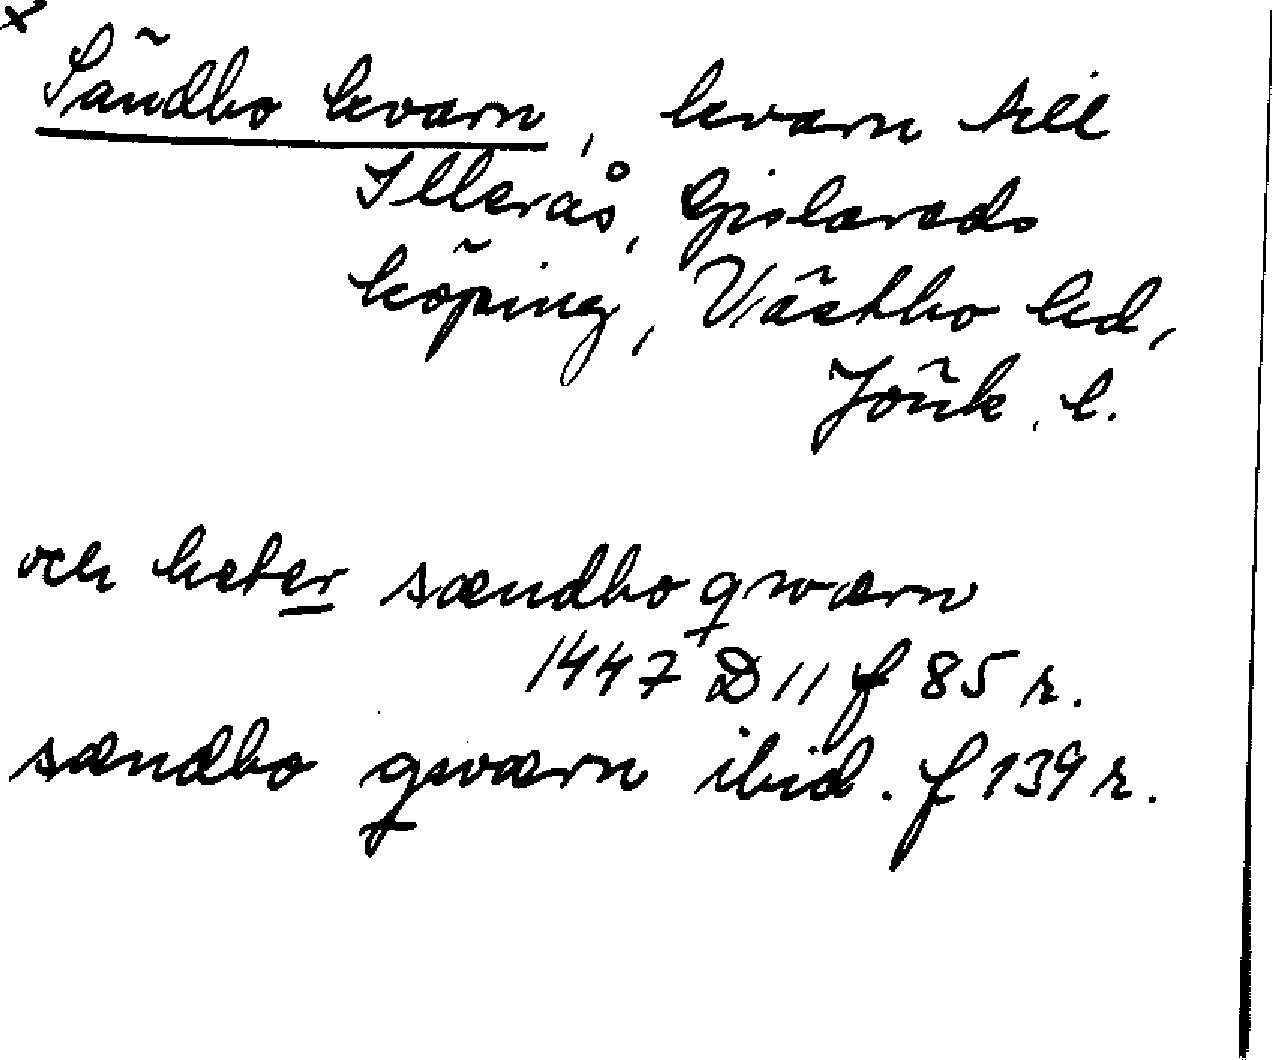 x
Sändbo kvarn, kvarn till
Illerås, Gislaveds
köping, Västbo hd,
Jönk. l.
och heter sændbo qwærn
1447 D 11 f 85 r.
sændbo qwærn ibid. f 139 r.